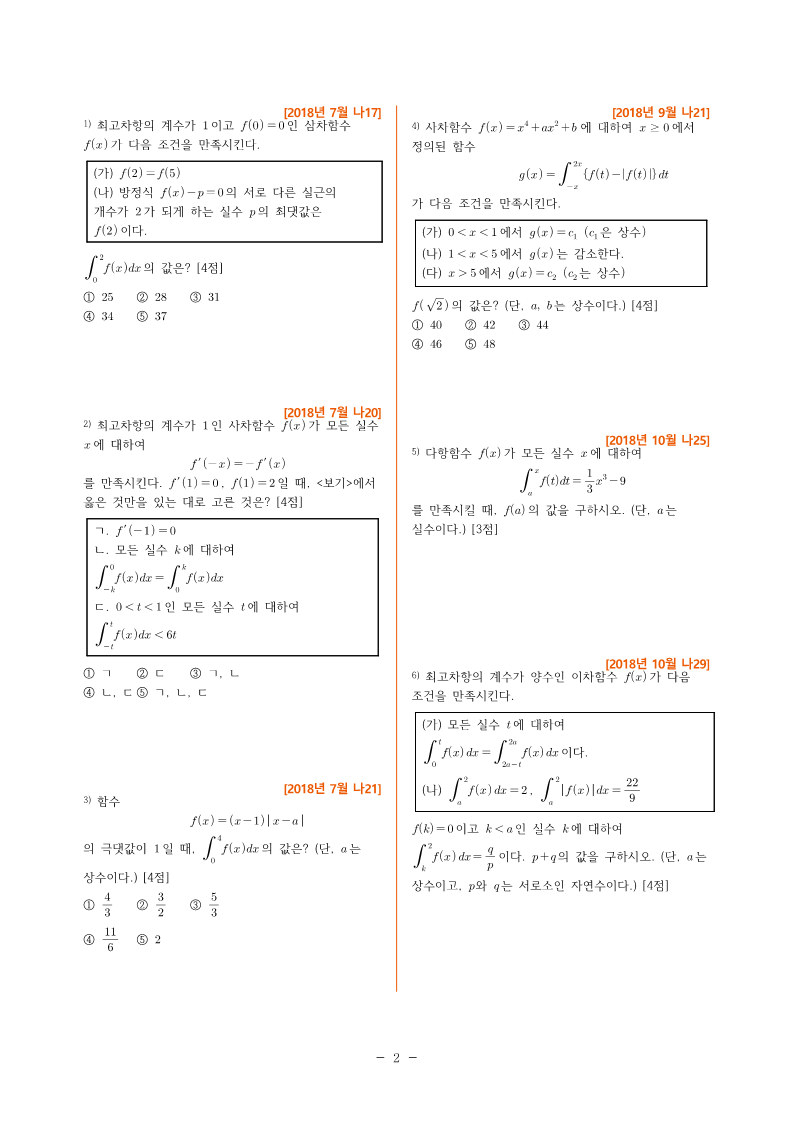 [2018년 7월 나17]
1) 최고차항의 계수가 1이고 f(0)=0인 삼차함수
f(x)가 다음 조건을 만족시킨다.
(가) f(2)=f(5)
(나) 방정식 f(x)-p=0의 서로 다른 실근의
개수가 2가 되게 하는 실수 p의 최댓값은
f(2)이다.
∫₀² f(x)dx의 값은? [4점]
① 25 ② 28 ③ 31
④ 34 ⑤ 37
[2018년 7월 나20]
2) 최고차항의 계수가 1인 사차함수 f(x)가 모든 실수
x에 대하여
f′(-x)=-f′(x)
를 만족시킨다. f′(1)=0, f(1)=2일 때, <보기>에서
옳은 것만을 있는 대로 고른 것은? [4점]
ㄱ. f′(-1)=0
ㄴ. 모든 실수 k에 대하여
∫₋ₖ⁰ f(x)dx=∫₀ᵏ f(x)dx
ㄷ. 0<t<1인 모든 실수 t에 대하여
∫₋ₜᵗ f(x)dx<6t
① ㄱ ② ㄷ ③ ㄱ, ㄴ
④ ㄴ, ㄷ ⑤ ㄱ, ㄴ, ㄷ
[2018년 7월 나21]
3) 함수
f(x)=(x-1)|x-a|
의 극댓값이 1일 때, ∫₀⁴ f(x)dx의 값은? (단, a는
상수이다.) [4점]
① 4/3 ② 3/2 ③ 5/3
④ 11/6 ⑤ 2
[2018년 9월 나21]
4) 사차함수 f(x)=x⁴+ax²+b에 대하여 x≥0에서
정의된 함수
g(x)=∫₋ₓ²ˣ {f(t)-|f(t)|}dt
가 다음 조건을 만족시킨다.
(가) 0<x<1에서 g(x)=c₁ (c₁은 상수)
(나) 1<x<5에서 g(x)는 감소한다.
(다) x>5에서 g(x)=c₂ (c₂는 상수)
f(√2)의 값은? (단, a, b는 상수이다.) [4점]
① 40 ② 42 ③ 44
④ 46 ⑤ 48
[2018년 10월 나25]
5) 다항함수 f(x)가 모든 실수 x에 대하여
∫ₐˣ f(t)dt=1/3 x³-9
를 만족시킬 때, f(a)의 값을 구하시오. (단, a는
실수이다.) [3점]
[2018년 10월 나29]
6) 최고차항의 계수가 양수인 이차함수 f(x)가 다음
조건을 만족시킨다.
(가) 모든 실수 t에 대하여
∫₀ᵗ f(x)dx=∫₂ₐ₋ₜ²ᵃ f(x)dx이다.
(나) ∫ₐ² f(x)dx=2, ∫ₐ² |f(x)|dx=22/9
f(k)=0이고 k<a인 실수 k에 대하여
∫ₖ² f(x)dx=q/p이다. p+q의 값을 구하시오. (단, a는
상수이고, p와 q는 서로소인 자연수이다.) [4점]
- 2 -